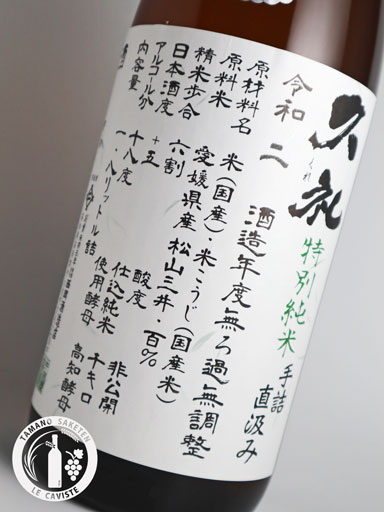 久礼
くれ
特別純米
手詰
直汲み
令和二酒造年度無ろ過無調整
原材料名 米(国産)・米こうじ(国産米)
原料米 愛媛県産松山三井・百%
精米歩合 六割
日本酒度 +五
酸度 非公開
アルコール分 十八度
仕込純米 千キロ
内容量 一・八リットル詰
使用酵母 高知酵母
TAMANO SAKETEN
LE CAVISTE